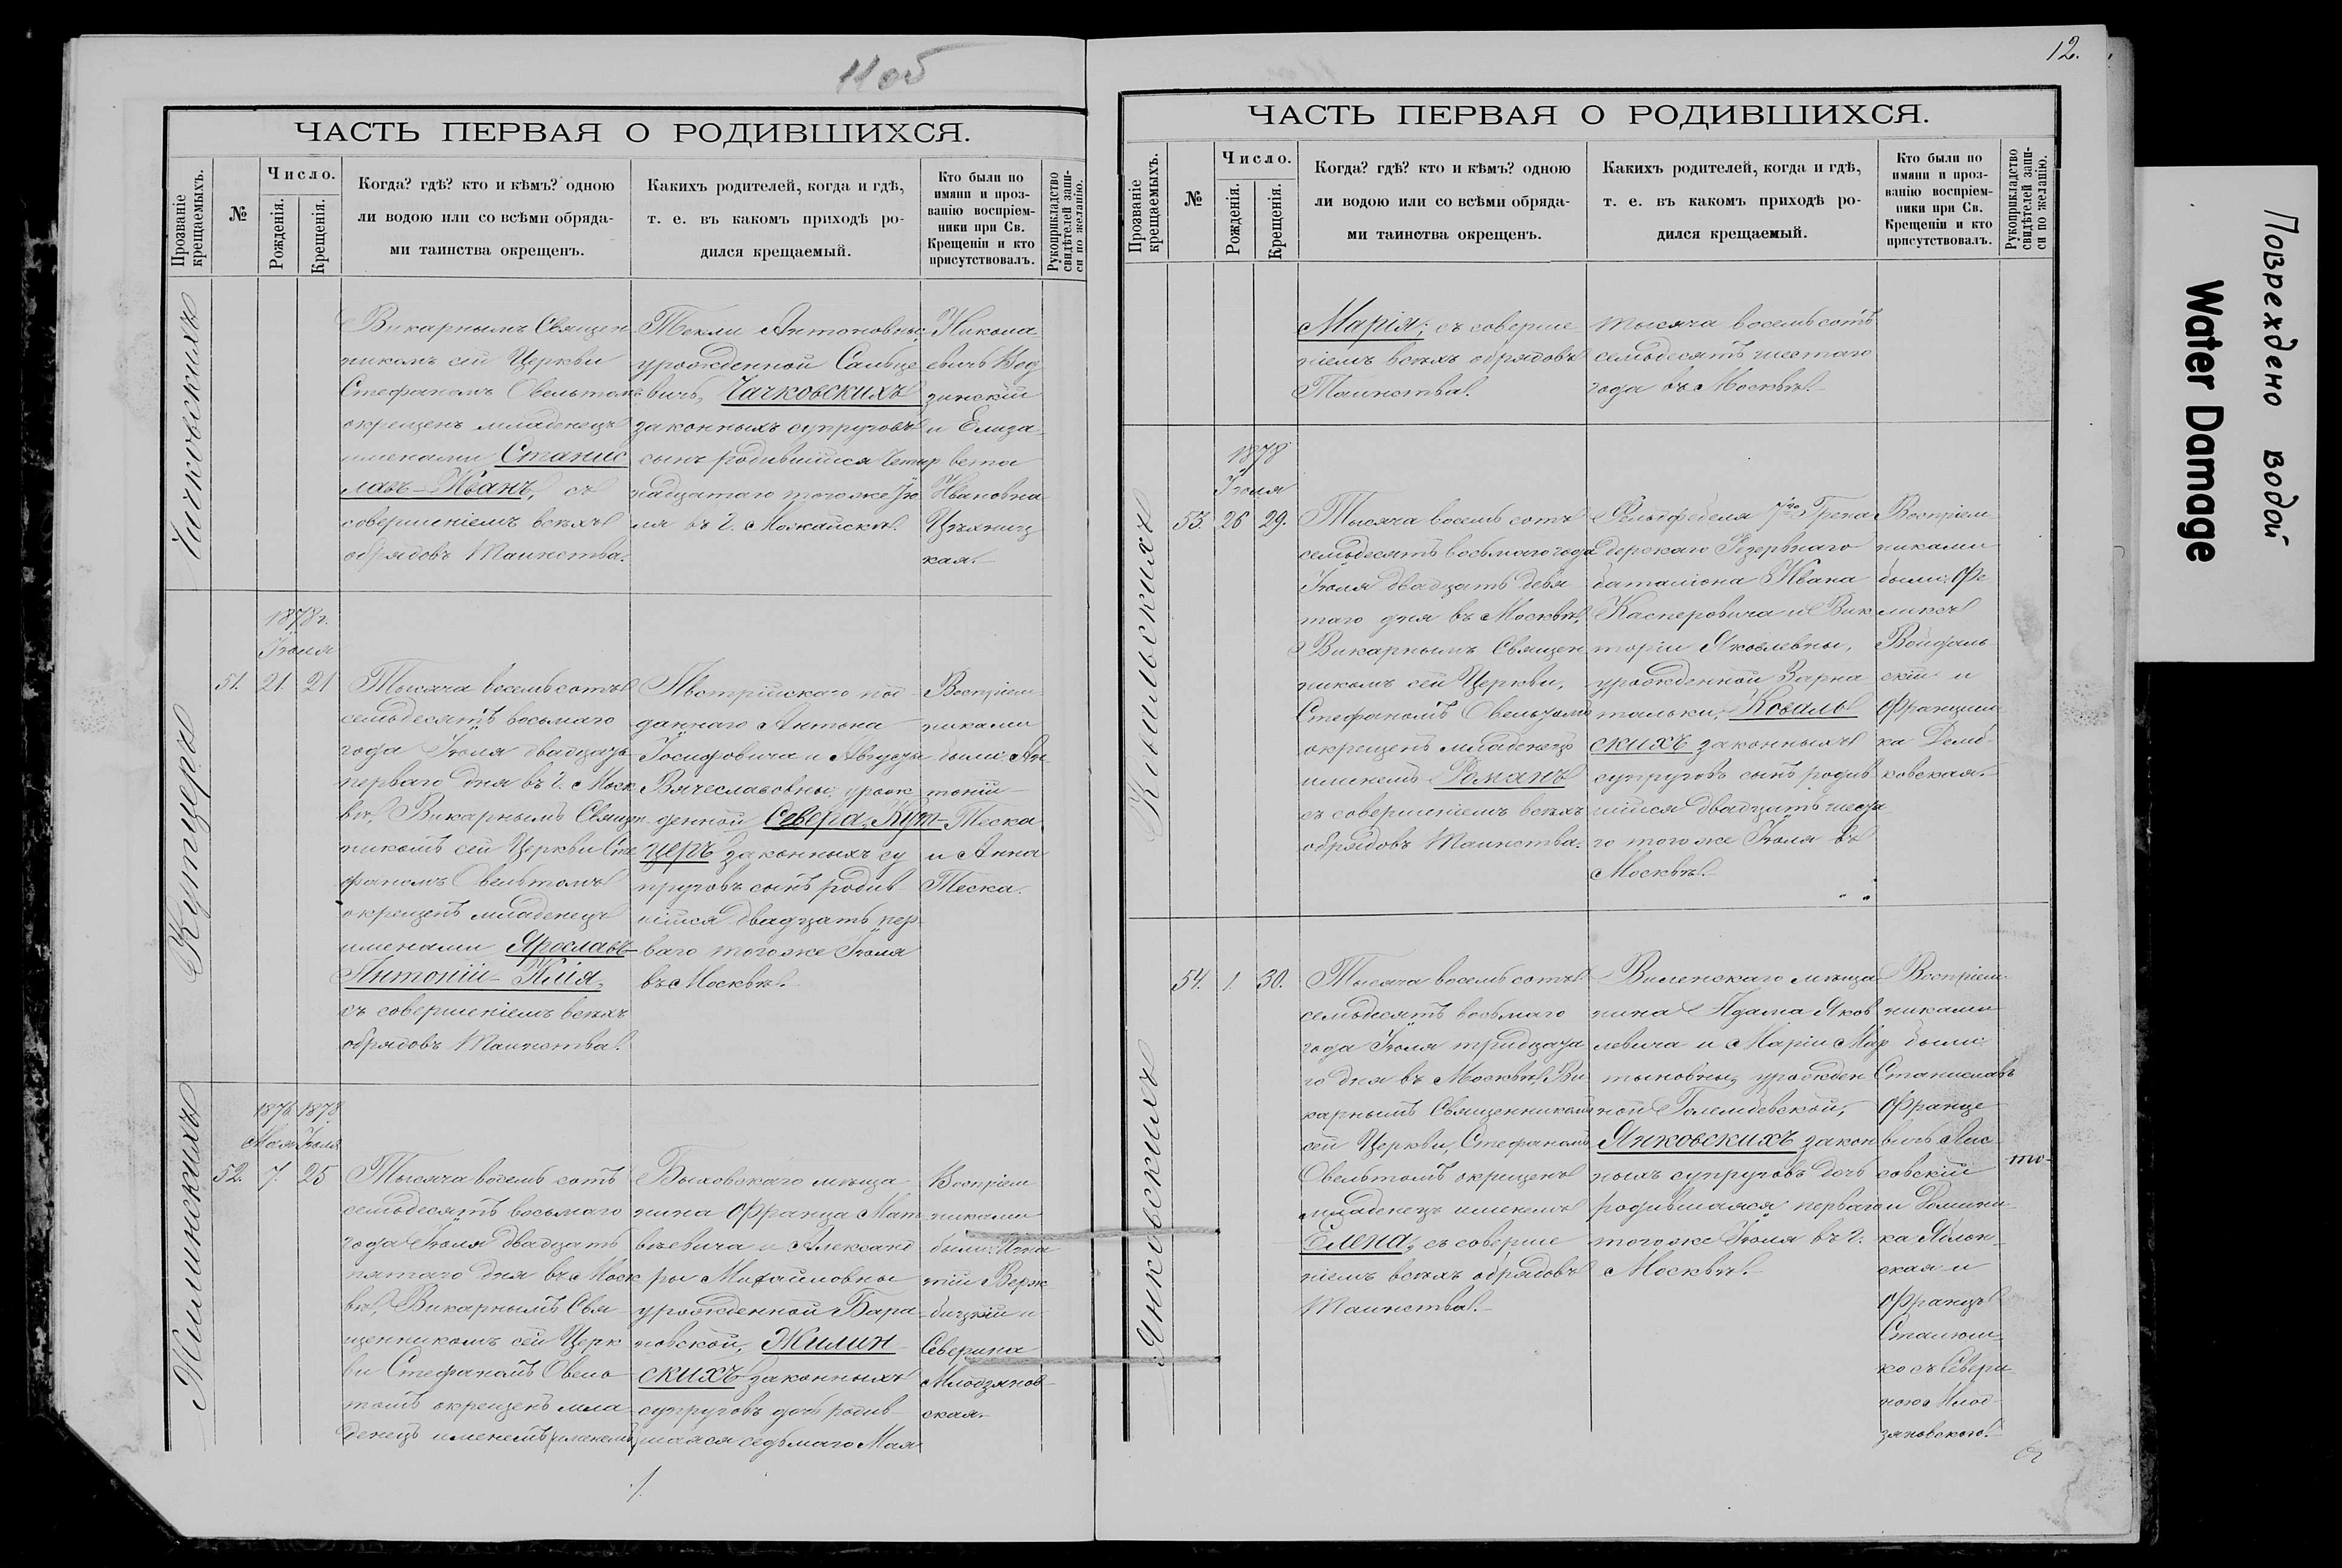 11 об
ЧАСТЬ ПЕРВАЯ О РОДИВШИХСЯ.
Прозваніе крещаемыхъ.
№
Число.
Рожденія.
Крещенія.
Когда? гдѣ? кто и кѣмъ? одною
ли водою или со всѣми обряда-
ми таинства окрещенъ.
Какихъ родителей, когда и гдѣ,
т. е. въ какомъ приходѣ ро-
дился крещаемый.
Кто были по
имяни и проз-
ванію воспріем-
ники при Св.
Крещеніи и кто
присутствовалъ.
Рукоприкладство
свидѣтелей запи-
си по желанію.
Чачковскихъ
Викарнымъ Священ
никомъ сей Церкви
Стефаномъ Овельтомъ
окрещенъ младенецъ
именами Станис
лавъ-Иванъ, съ
совершеніемъ всѣхъ
обрядовъ Таинства.
Текли Антоновны,
урожденной Сальце
вичъ, Чачковскихъ
законныхъ супруговъ
сынъ родившійся четыр
надцатаго того же Ію
ля въ г. Можайскѣ.
Никола
евичъ Вод
зинскій
и Елиза
вета
Ивановна
кая.
Кутцеръ
1878 г.
Іюля
51. 21. 21
Тысяча восемь сотъ
семьдесятъ восьмаго
года Іюля двадцать
перваго дня въ г. Моск
вѣ, Викарнымъ Священ
никомъ сей Церкви Сте
фаномъ Овельтомъ
окрещенъ младенецъ
именами Ярославъ-
Антоній-Илія,
съ совершеніемъ всѣхъ
обрядовъ Таинства.
Австрійскаго под
даннаго Антона
Іосифовича и Августы
Вячеславовны, урож
денной Севера, Кут-
церъ законныхъ су
пруговъ сынъ родив
шійся двадцать пер
ваго того же Іюля
въ Москвѣ.
Воспріем
никами
были: Ан
тоній
Теска
и Анна
Теска.
Жилинскихъ
1876 1878
Мая Іюля
52. 7. 25
Тысяча восемь сотъ
семьдесятъ восьмаго
года Іюля двадцать
пятаго дня въ Моск
вѣ, Викарнымъ Свя
щенникомъ сей Церк
ви Стефаномъ Овель
томъ окрещенъ мла
денецъ именемъ
Быховскаго мѣща
нина Франца Мат
вѣевича и Александ
ры Михайловны
урожденной Бара
новской, Жилин
скихъ законныхъ
супруговъ дочь родив
шаяся седьмаго Мая
Воспріем
никами
были: Игна
тій Верж
бицкій и
Северина
Млодзянов
ская.
12.
ЧАСТЬ ПЕРВАЯ О РОДИВШИХСЯ.
Прозваніе крещаемыхъ.
№
Число.
Рожденія.
Крещенія.
Когда? гдѣ? кто и кѣмъ? одною
ли водою или со всѣми обряда-
ми таинства окрещенъ.
Какихъ родителей, когда и гдѣ,
т. е. въ какомъ приходѣ ро-
дился крещаемый.
Кто были по
имяни и проз-
ванію воспріем-
ники при Св.
Крещеніи и кто
присутствовалъ.
Рукоприкладство
свидѣтелей запи-
си по желанію.
Марія, съ соверше
ніемъ всѣхъ обрядовъ
Таинства.
тысяча восемь сотъ
семьдесятъ шестаго
года въ Москвѣ.
1878
Іюля
53. 26 29.
Тысяча восемь сотъ
семьдесятъ восьмаго года
Іюля двадцать девя
таго дня въ Москвѣ,
Викарнымъ Священ
никомъ сей Церкви,
Стефаномъ Овельтомъ
окрещенъ младенецъ
именемъ Романъ
съ совершеніемъ всѣхъ
обрядовъ Таинства.
Фельдфебеля Грена
дерскаго Резервнаго
баталіона Ивана
Касперовича и Вик
торіи Яковлевны,
урожденной Варна
тальки, Коваль
скихъ законныхъ
супруговъ сынъ родив
шійся двадцать шеста
го того же Іюля въ
Москвѣ.
Воспріем
никами
были: Фе
ликсъ
Войдаль
скій и
Францишка
Демб
ковская.
Янковскихъ
54. 1. 30.
Тысяча восемь сотъ
семьдесятъ восьмаго
года Іюля тридцата
го дня въ Москвѣ, Ви
карнымъ Священникомъ
сей Церкви, Стефаномъ
Овельтомъ окрещенъ
младенецъ именемъ
Елена, съ соверше
ніемъ всѣхъ обрядовъ
Таинства.
Виленскаго мѣща
нина Адама Яков
левича и Маріи Мар
тыновны, урожден
ной Голембевской,
Янковскихъ закон
ныхъ супруговъ дочь
родившаяся перваго
того же Іюля въ г.
Москвѣ.
Воспріем
никами
были:
Станиславъ
Франце
вичъ Лис
совскій
и Домини
ка Яблон
ская и
Францъ
Сталюш
ко съ Севери
ною Млод
зяновскою.
Повреждено водой
Water Damage